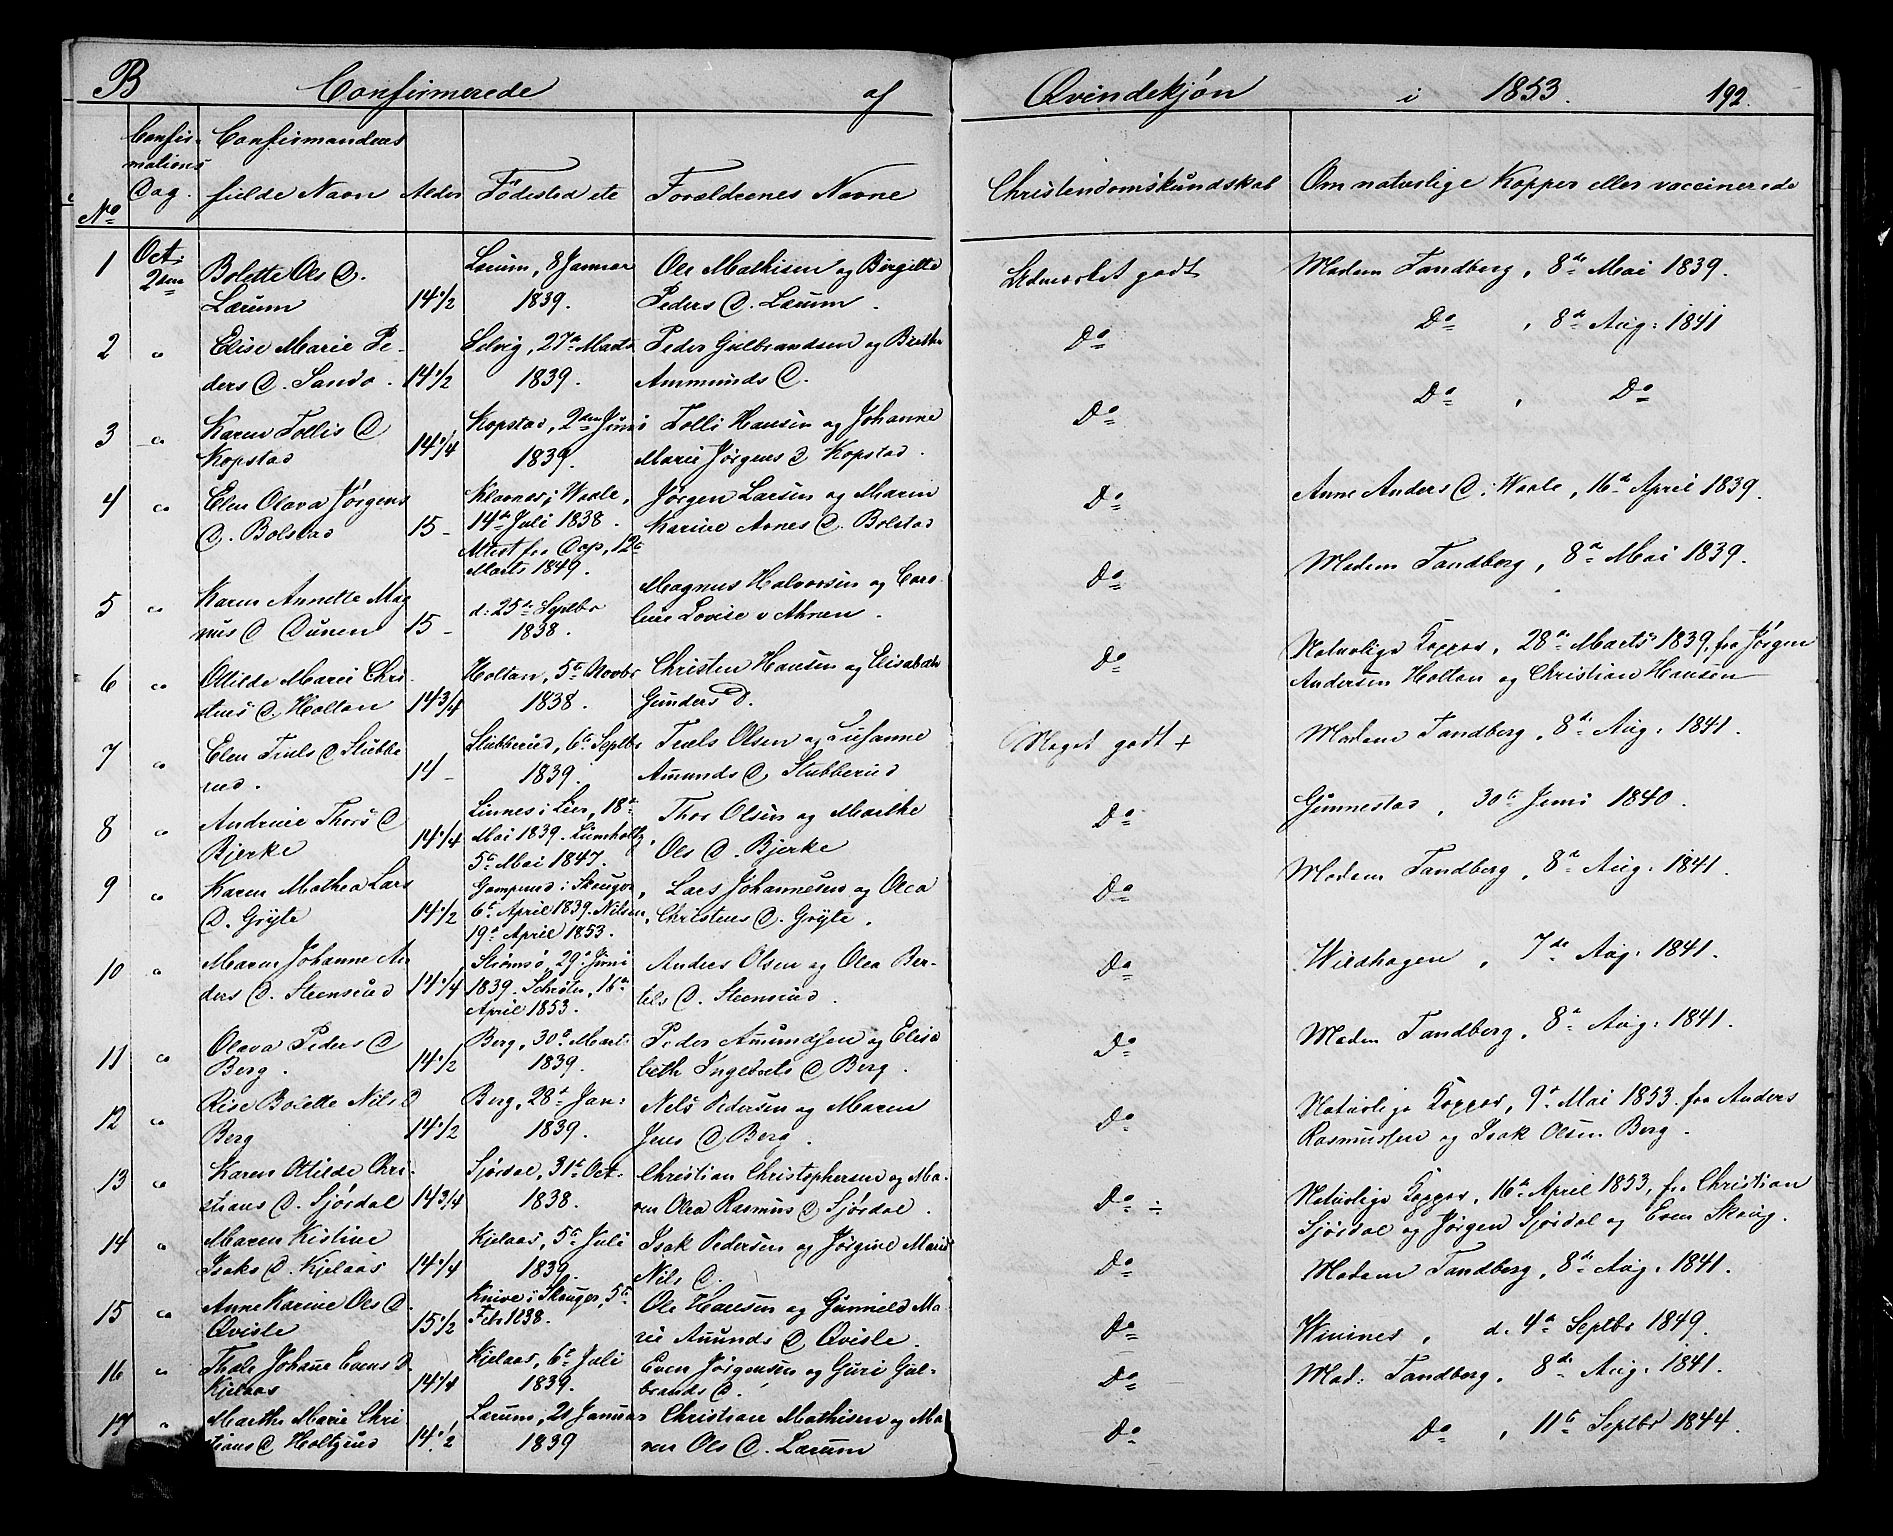 B Confirmerede af Qvindekjøn i 1853. 192.
No Confirmations Dag. Confirmandens fulde Navn Alder Födested etc Forældrenes Navne Christendomskundskab Om naturlige Kopper eller vaccinerede
1 Oct: 2den Bolette Ols D. Lærum 14 1/2 Lærum, 8 Januar 1839. Ole Mathisen og Birgitte Peders D. Lærum. Udmærket godt Madem Tandberg, 8de Mai 1839.
2 " Elise Marie Peders D. Sando. 14 1/2 Selvig, 27de Marts 1839. Peder Gulbrandsen og Birthe Ammunds D. Do Do, 8de Aug: 1841
3 " Karen Tollis D Kopstad 14 1/4 Kopstad, 2den Juni 1839. Tolli Hansen og Johanne Marie Jørgens D Kopstad. Do Do, Do
4 " Elen Olava Jørgens D. Bolstad 15 - i Waale, 14de Juli 1838. Attest fra Dap, 12te Marts 1849. Jørgen Larsen og Maren Karine Arnes D. Bolstad Do Anne Anders D. i Waale, 16de April 1839.
5 " Karen Annette Magnus D Dunen 15 - d: 25de Septbr 1838. Magnus Halvorsen og Caroline Lovise v Ahnen. Do Madem Tandberg, 8de Mai 1839.
6 " Otilde Marie Christens D. Holtan 14 3/4 Holtan, 5te Novbr 1838. Christen Hansen og Elisabeth Gunders D. Do Naturlige Kopper, 28de Marts 1839, fra Jørgen Andersen Holtan og Christian Hansen
7 " Elen Truls D Stubberud. 14 - Stubberud, 6te Septbr 1839. Truls Olsen og Susanne Amunds D. Stubberud Meget godt + Madem Tandberg, 8de Aug: 1841.
8 " Andrine Thors D Bjerke 14 1/4 Linnes i Lier, 18de Mai 1839. Lumholtz, 5te Mai 1847. Thor Olsen og Marthe Ols D. Bjerke Do Gunnestad, 30te Juni 1840.
9 " Karen Mathea Lars D. Gryte 14 1/2 i Skouger, 6te April 1839. Nilsen, 19de April 1853. Lars Johannesen og Olea Christens D. Gryte. Do Madem Tandberg, 8de Aug: 1841.
10 " Maren Johanne Anders D. Steensrud 14 1/4 Strømsø, 29de Juni 1839. Schrøter, 16de April 1853. Anders Olsen og Olea Bertels D. Steensrud. Do Wirdhagen, 7de Aug: 1841.
11 " Olava Peders D Berg. 14 1/2 Berg, 30te Mart: 1839. Peder Amundsen og Elisabeth Ingebrets D Berg. Do Madem Tandberg, 8de Aug: 1841.
12 " Rise Bolette Nils D Berg 14 1/2 Berg, 28de Jan: 1839. Nels Pedersen og Maren Jens D Berg. Do Naturlige Kopper, 9de Mai 1853. fra Anders Rasmussen og Isak Olsen Berg.
13 " Karen Otilde Christians D. Sjørdal 14 3/4 Sjørdal, 31te Oct: 1838. Christian Christophersen og Maren Olea Rasmus D Sjørdal. Do ÷ Naturlige Kopper, 16de April 1853, fra Christian Sjørdal og Jørgen Sjørdal og Even Skoug.
14 " Maren Kistine Isaks D. Kjelaas 14 1/4 Kjelaas, 5te Juli 1839. Isak Pedersen og Jørgine Marie Nils D. Do Madem Tandberg, 8de Aug: 1841.
15 " Anne Karine Ols D. Qvisle 15 1/2 Knive i Skouger, 5te Febr 1838. Ole Hansen og Gunnild Marie Amunds D Qvisle. Do d. 4de Septbr 1849.
16 " Thale Johanne Evens D Kjelaas 14 1/4 Kjelaas, 6te Juli 1839. Even Jørgensen og Guri Gulbrands D. Do Mad: Tandberg, 8de Aug: 1841.
17 " Marthe Marie Christians D 14 1/2 Lærum, 21 Januar 1839 Christian Mathisen og Maren Ols D. Lærum Do Do, 11te Septbr 1844.